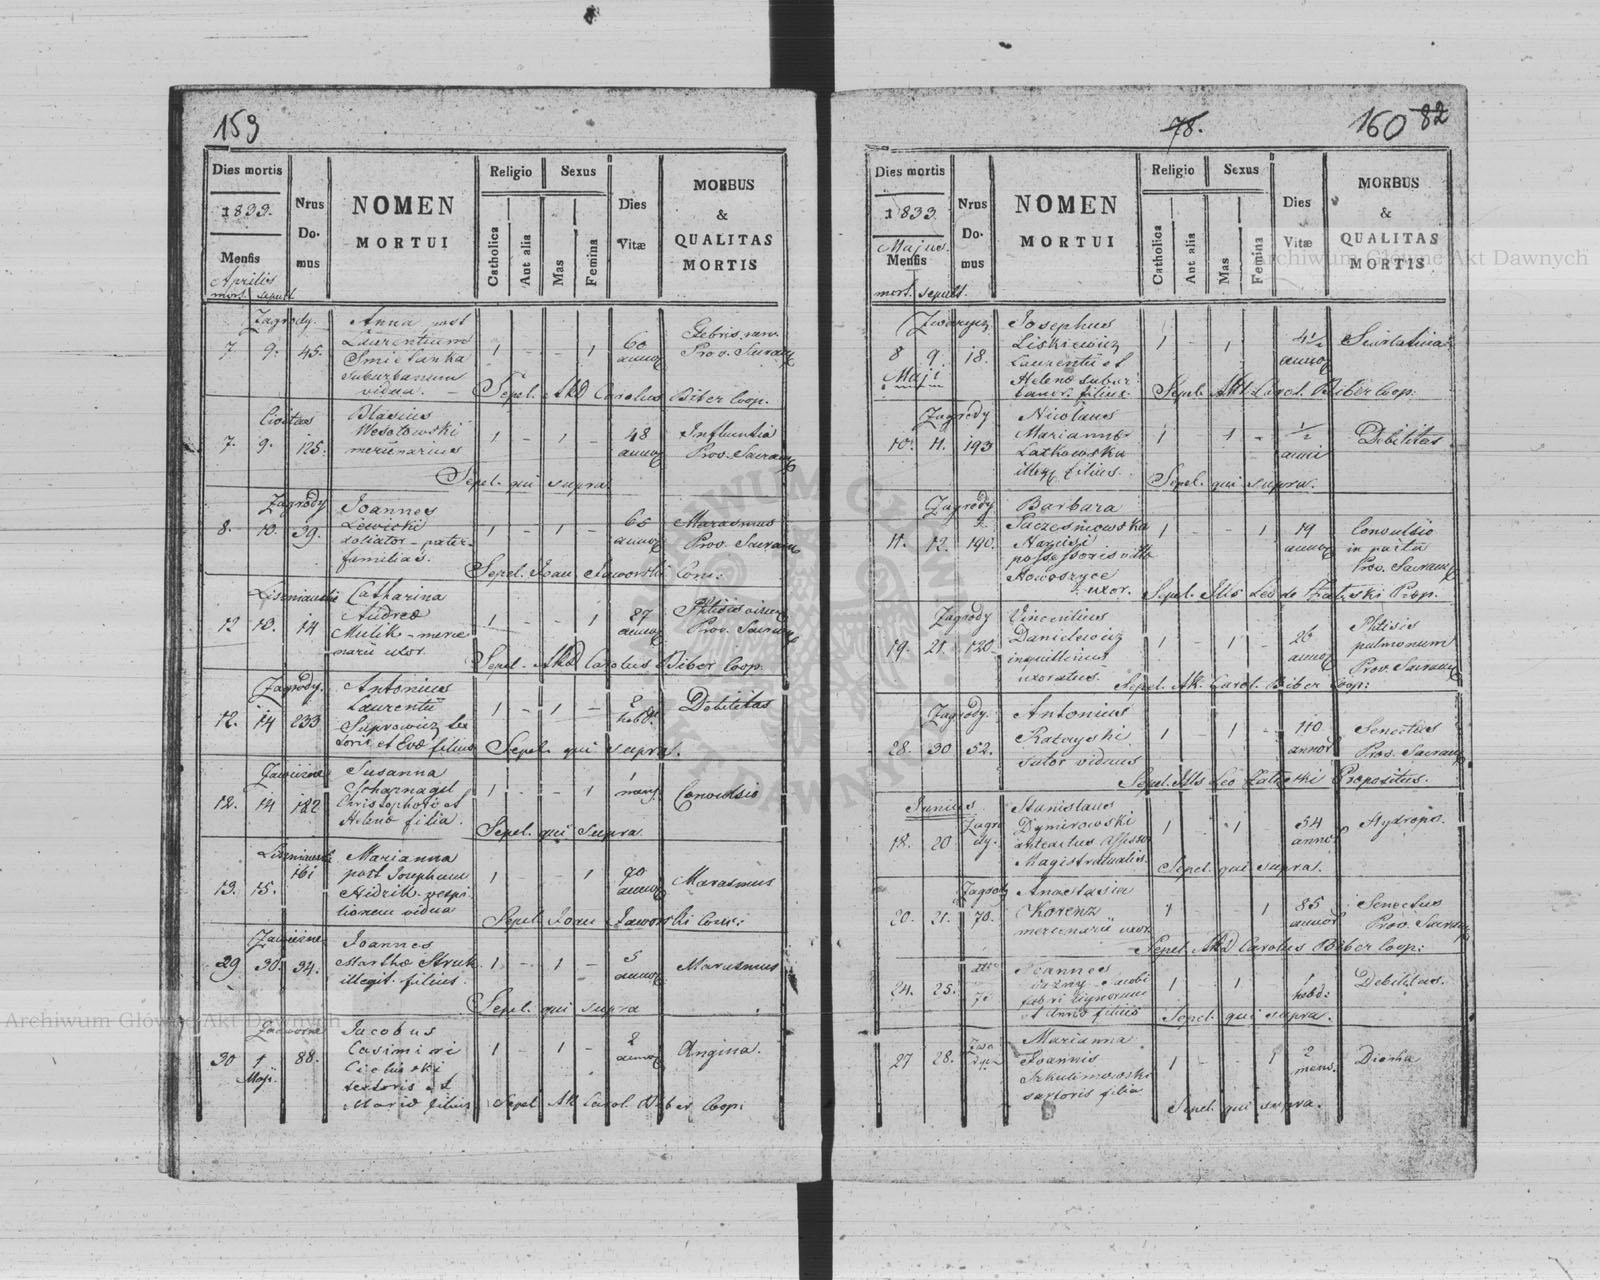 159
Dies mortis
1833.
Mensis
Aprilis
mort. sepult.
Nrus Domus
NOMEN
MORTUI
Religio
Catholica
Aut alia
Sexus
Mas
Femina
Dies
Vitæ
MORBUS
&
QUALITAS
MORTIS
Zagrody.
7 9. 45.
Anna post
Laurentium
Smietanka
suburbanum
vidua.
1 - - 1
60
annor
Febris nerv.
Prov. Sacram
Sepel. ARD Carolus Biber Coop.
Civitas
7. 9. 125.
Blasius
Wesołowski
mercenarius
1 - 1 -
48
annor
Influentia
Prov. Sacram
Sepel. qui supra
Zagrody
8. 10. 39.
Joannes
Lewicki
doliator - pater
familias.
1 - 1 -
65
annor
Marasmus
Prov. Sacram
Sepel. Joan Jaworski Com:
12 13. 14
Catharina
Andreæ
Mulik - merce
narii uxor.
1 - - 1
27
annor
Prov. Sacram
Sepel. ARD Carolus Biber Coop.
Zagrody.
12. 14 233
Antonius
Laurentii
et Evæ filius
1 - 1 -
2
hebd.
Debilitas
Sepel. qui supra.
12. 14 122
Susanna
Scharnagel
Christophori et
Helenæ filia.
1 - - 1
1
mens.
Convulsio
Sepel. qui supra
161
13. 15.
Marianna
post Josephum
vespi
lionem vidua
1 - - 1
70
annor
Marasmus
Sepel Joan Jaworski Com:
29 30. 34.
Joannes
Marthæ Struk
illegit. filius.
1 - 1 -
5
annor
Marasmus
Sepel. qui supra
30 1 Maji. 88.
Jacobus
Casimiri
textoris et
Mariæ filius
1 - 1 -
2
annor
Angina.
Sepel AR Carol. Biber Coop:
78.
160 82
Dies mortis
1833
Majus.
Mensis
mort. sepult.
Nrus Domus
NOMEN
MORTUI
Religio
Catholica
Aut alia
Sexus
Mas
Femina
Dies
Vitæ
MORBUS
&
QUALITAS
MORTIS
8 9. 18.
Maji
Josephus
Liskiewicz
Laurentii et
Helenæ subur
banor. filius
1 - 1
4½
annor
Scarlatina
Sepel. AR Carol. Biber Coop:
Zagrody
10. 11. 193
Nicolaus
Mariannæ
Latkowska
illeg. filius.
1 1 -
½
anni
Debilitas
Sepel. qui supra.
Zagrody
11. 12. 190.
Barbara
Paczesniowska
Narcisi
possessoris villæ
Nowoszyce
uxor.
1 - - 1
19
annor
Convulsio
in partu
Prov. Sacram
Sepel. Leo de Zatęski Prop.
Zagrody
19. 21. 120.
Vincentius
Danielewicz
inquilinus
uxoratus.
1 - 1 -
26
annor
Phtisis
pulmonum
Prov. Sacram
Sepel. AR. Carol. Biber Coop:
Zagrody.
28. 30 52.
Antonius
sutor viduus
1 - 1 -
110
annor
Senectus
Prov. Sacram
Sepel. Leo Præpositus.
Junius
Zagro
dy.
18. 20
Stanislaus
Dymirowski
anteactus Assessor
Magistratualis.
1 - 1
54
annor
Hydrops.
Sepel. qui supra.
Zagrody
20. 21. 70.
Anastasia
Korenz
mercenarii uxor
1 - - 1
85
annor
Senectus
Prov. Sacram
Sepel. ARD Carolus Biber Coop:
24. 25.
Joannes
Jacobi
fabri lignarii
et Annæ filius
1 1 -
1
hebd:
Debilitas.
Sepel. qui supra.
27 28.
Marianna
Joannis
sartoris filia
1 - - 1
2
mens.
Diarha
Sepel. qui supra.
Archiwum Główne Akt Dawnych
Archiwum Główne Akt Dawnych
ARCHIWUM GŁÓWNE AKT DAWNYCH